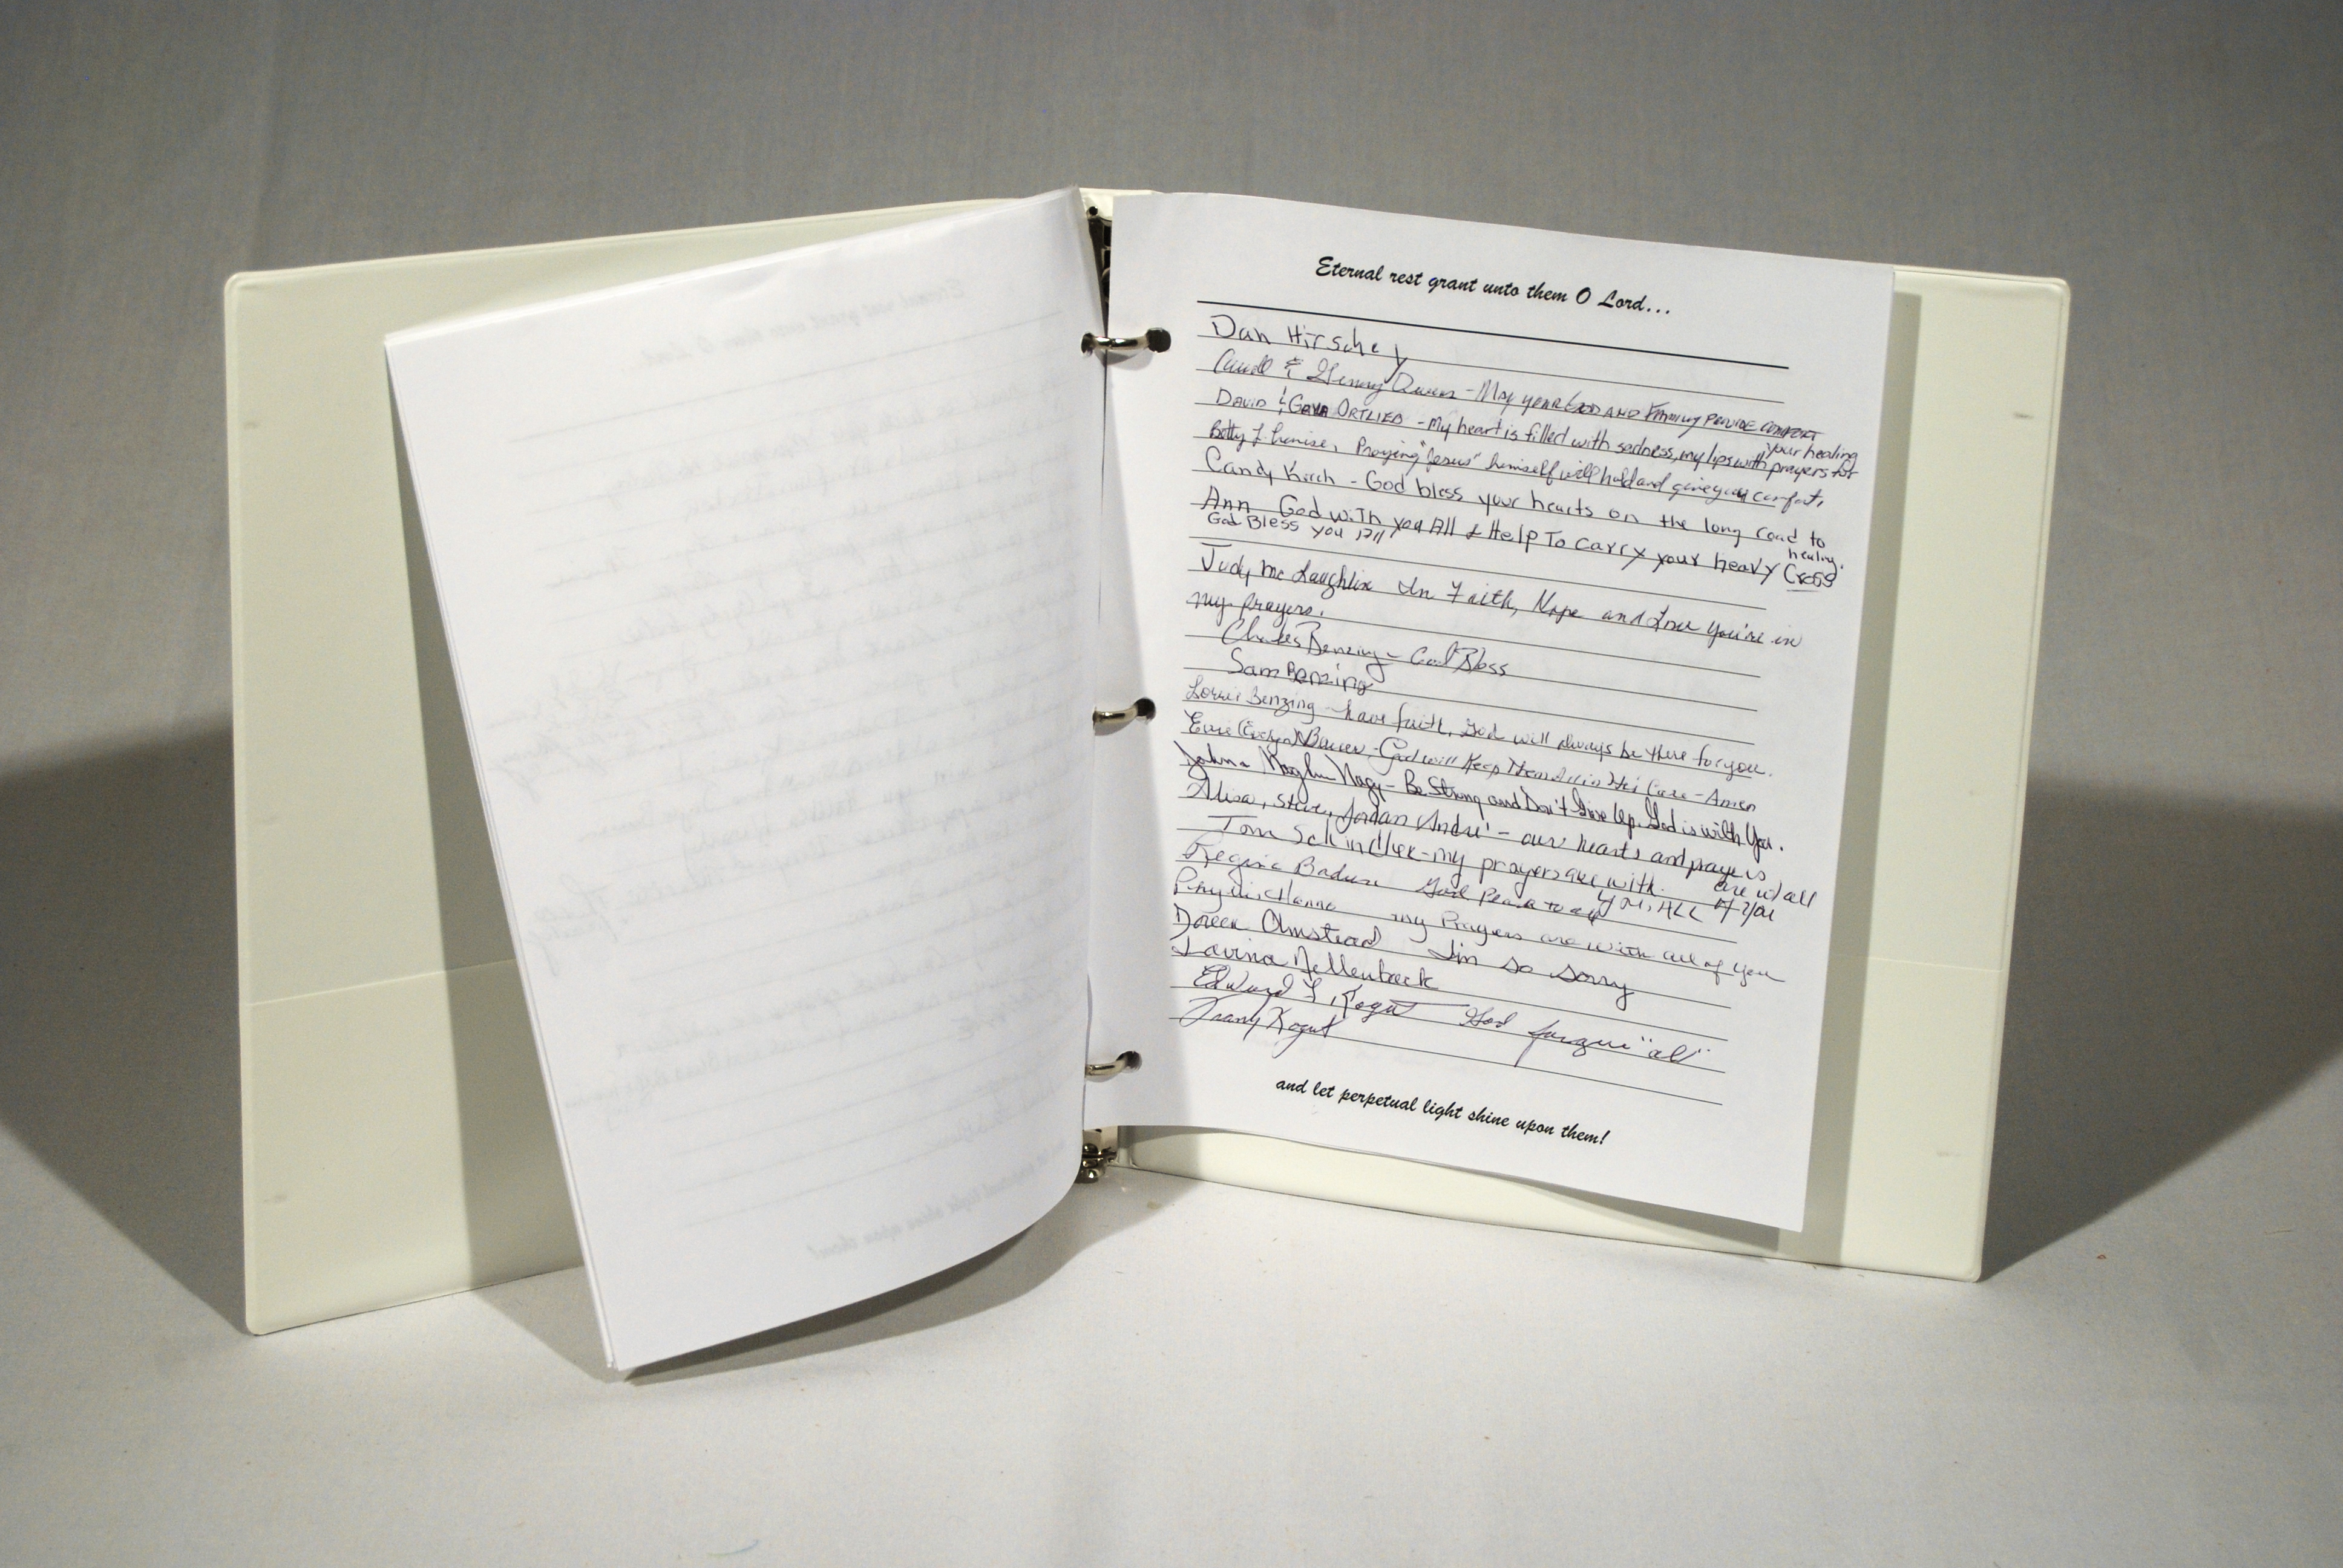 Eternal rest grant unto them O Lord...
Dan Hirschey
& Owens - May your God AND Family PROVIDE COMFORT
DAVID & GAYA ORTLIEB - My heart is filled with sadness, my lips with prayers for your healing
Betty Praying "Jesus" himself will hold and give you comfort,
Candy Kirch - God bless your hearts on the long road to healing.
Ann God with you All & Help To carry your heavy Cross
God Bless You All
Judy McLaughlin In Faith, Hope and Love you're in
my prayers.
Charles Benzing - God Bless
Sam Benzing
Lorrie Benzing - have faith, God will always be there for you.
Evie (Evelyn) - God will Keep Them All in His Care - Amen
Nagy - Be Strong and Don't Give Up. God is with You.
Alisa, Steve, Jordan Andre' - our hearts and prayers are w/ all of you
Tom - my prayers are with you, ALL
Regina God Peace to all
Phyllis Hanna my Prayers are with all of you
Doreen Olmstead I'm so sorry
Lavina Nellenback
Edward J. Kogut God forgive "all"
Kogut
and let perpetual light shine upon them!